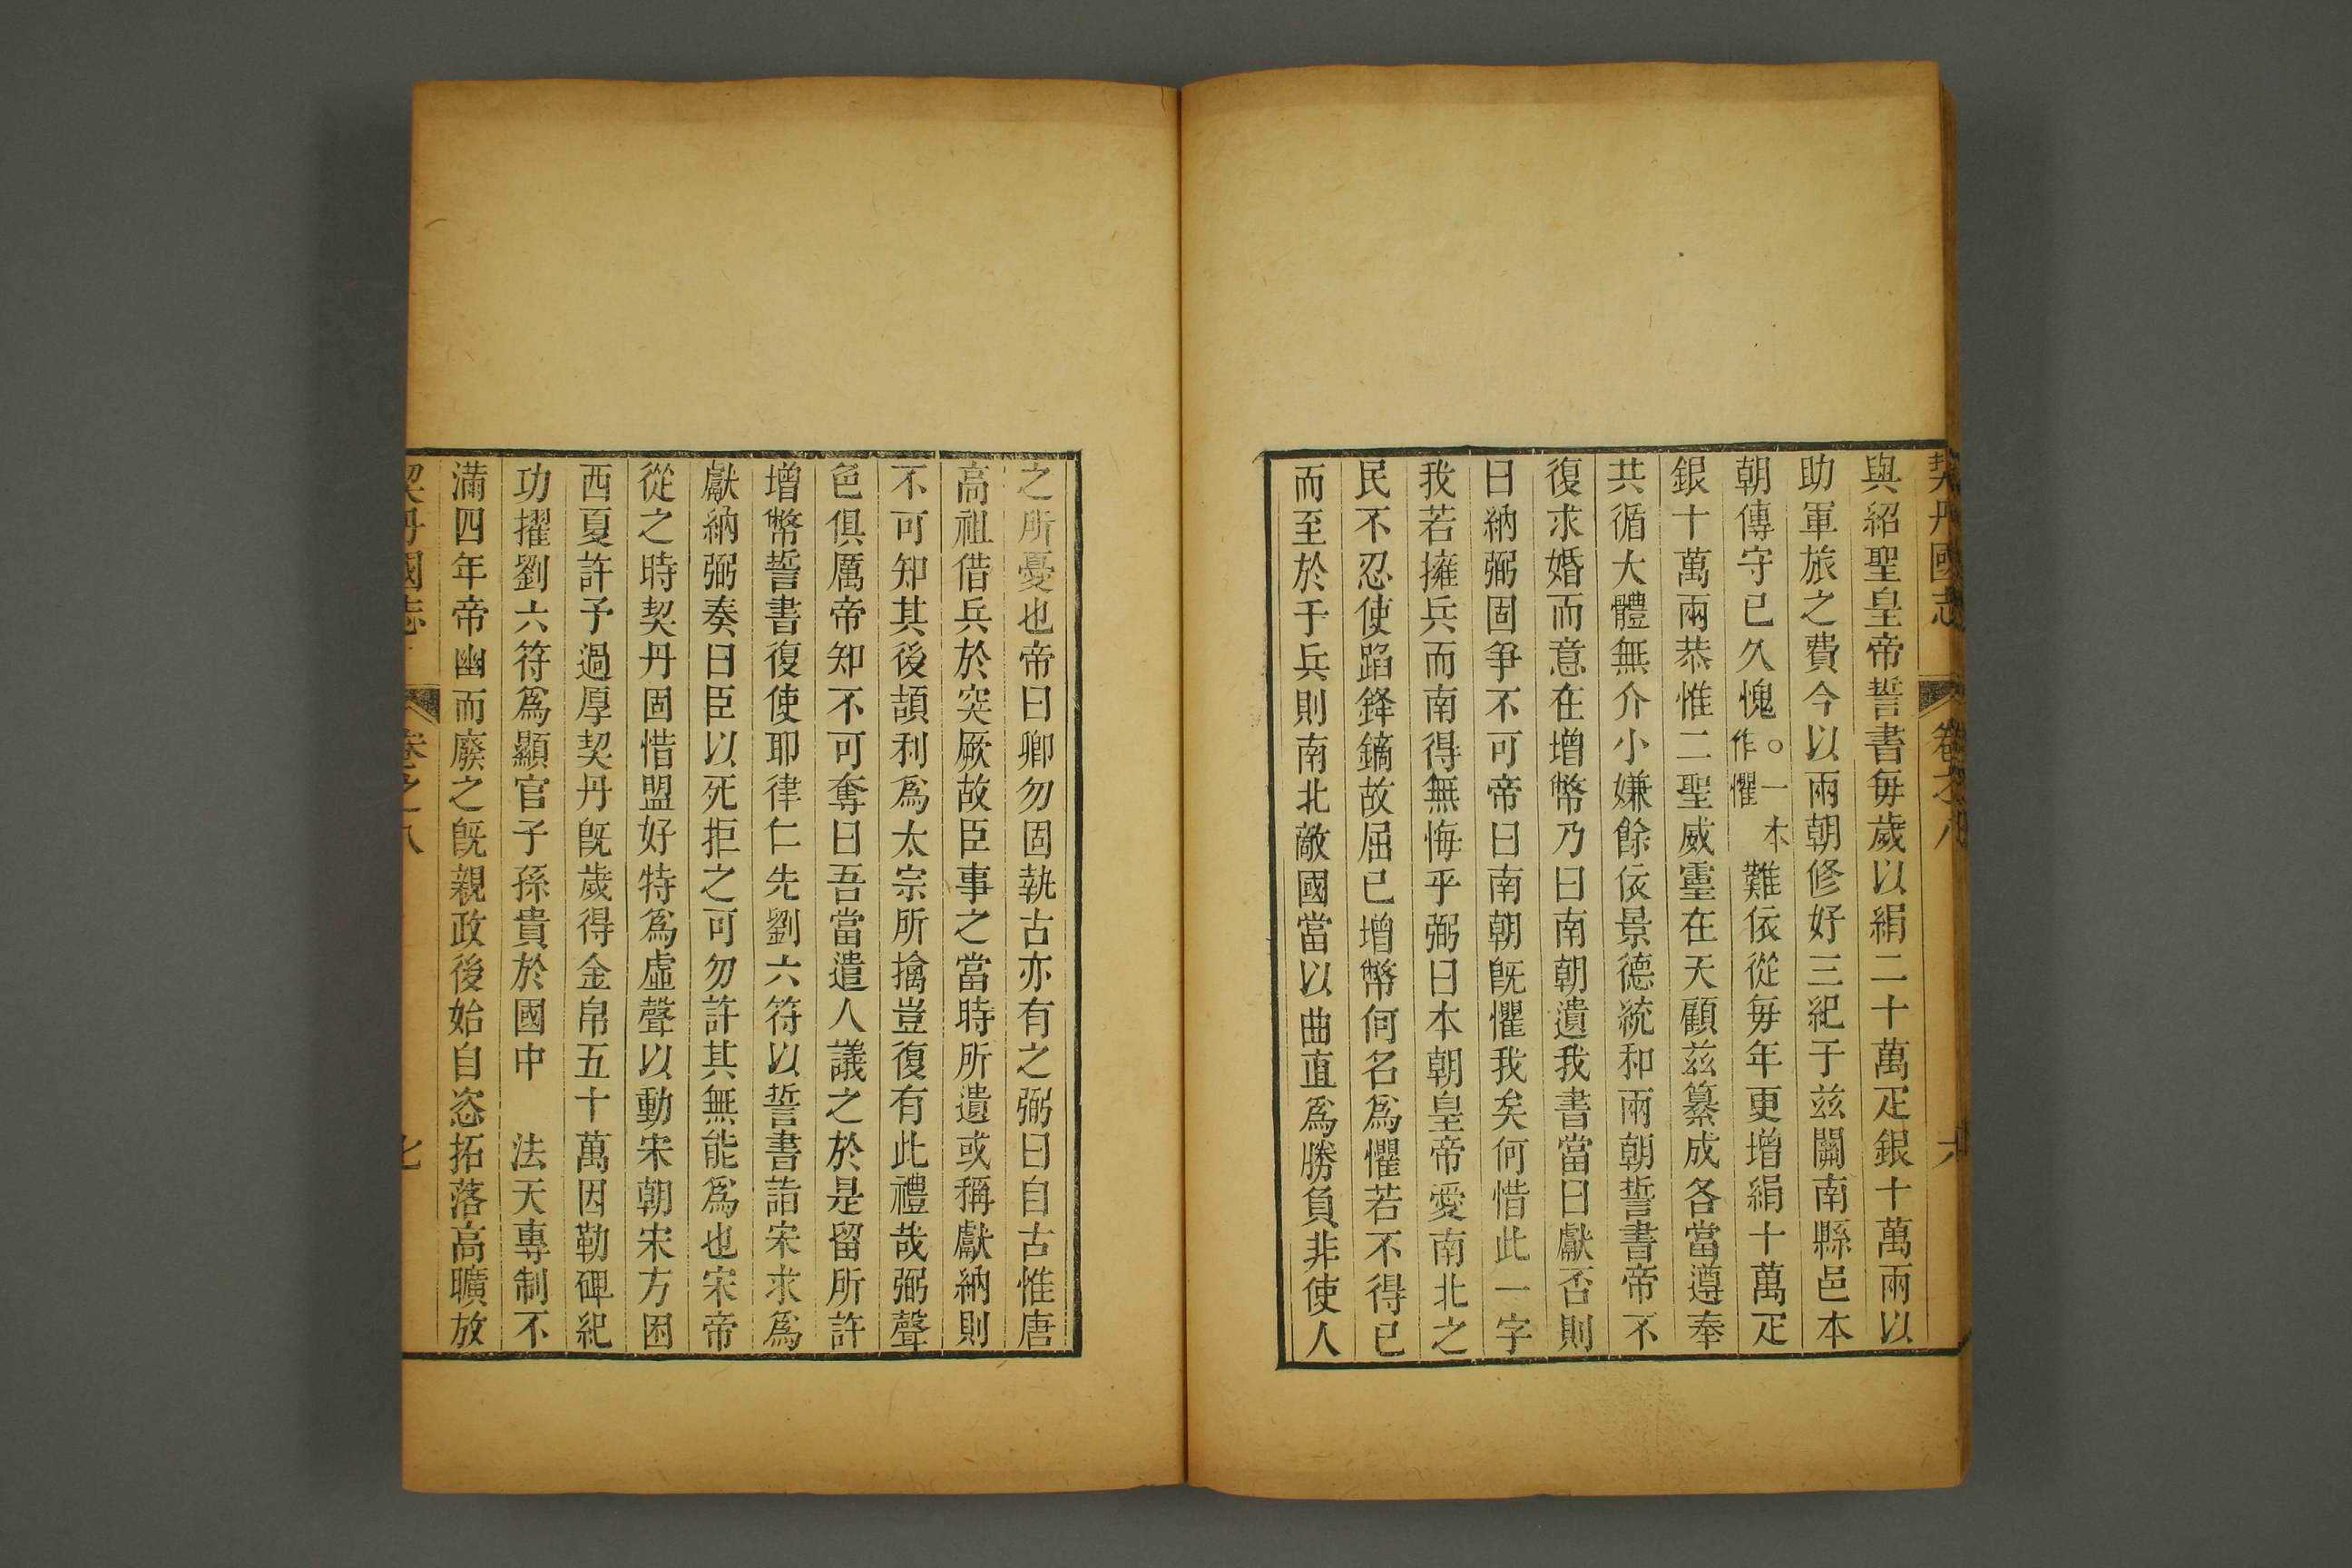 契丹國志 卷之八 六
與紹聖皇帝誓書毎歲以絹二十萬疋銀十萬兩以
助軍旅之費今以兩朝修好三紀于茲關南縣邑本
朝傳守已久愧○一本作懼難依從毎年更增絹十萬疋
銀十萬兩恭惟二聖威靈在天顧茲纂成各當遵奉
共循大體無介小嫌餘依景德統和兩朝誓書帝不
復求婚而意在增幣乃曰南朝遺我書當曰獻否則
曰納弼固爭不可帝曰南朝旣懼我矣何惜此一字
我若擁兵而南得無悔乎弼曰本朝皇帝愛南北之
民不忍使蹈鋒鏑故屈已增幣何名爲懼若不得已
而至於于兵則南北敵國當以曲直爲勝負非使人
之所憂也帝曰卿勿固執古亦有之弼曰自古惟唐
高祖借兵於突厥故臣事之當時所遺或稱獻納則
不可知其後頡利爲太宗所擒豈復有此禮哉弼聲
色俱厲帝知不可奪曰吾當遣人議之於是留所許
增幣誓書復使耶律仁先劉六符以誓書詣宋求爲
獻納弼奏曰臣以死拒之可勿許其無能爲也宋帝
從之時契丹固惜盟好特爲虛聲以動宋朝宋方困
西夏許予過厚契丹旣歲得金帛五十萬因勒碑紀
功擢劉六符爲顯官子孫貴於國中　法天專制不
滿四年帝幽而廢之旣親政後始自恣拓落高曠放
契丹國志 卷之八 七